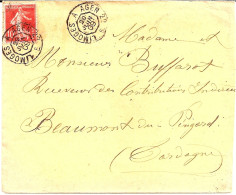 Madame et
Monsieur Buffarot
Receveur des Contributions Indirectes
Beaumont-du-Périgord
(Dordogne)
LIMOGES
LIMOGES